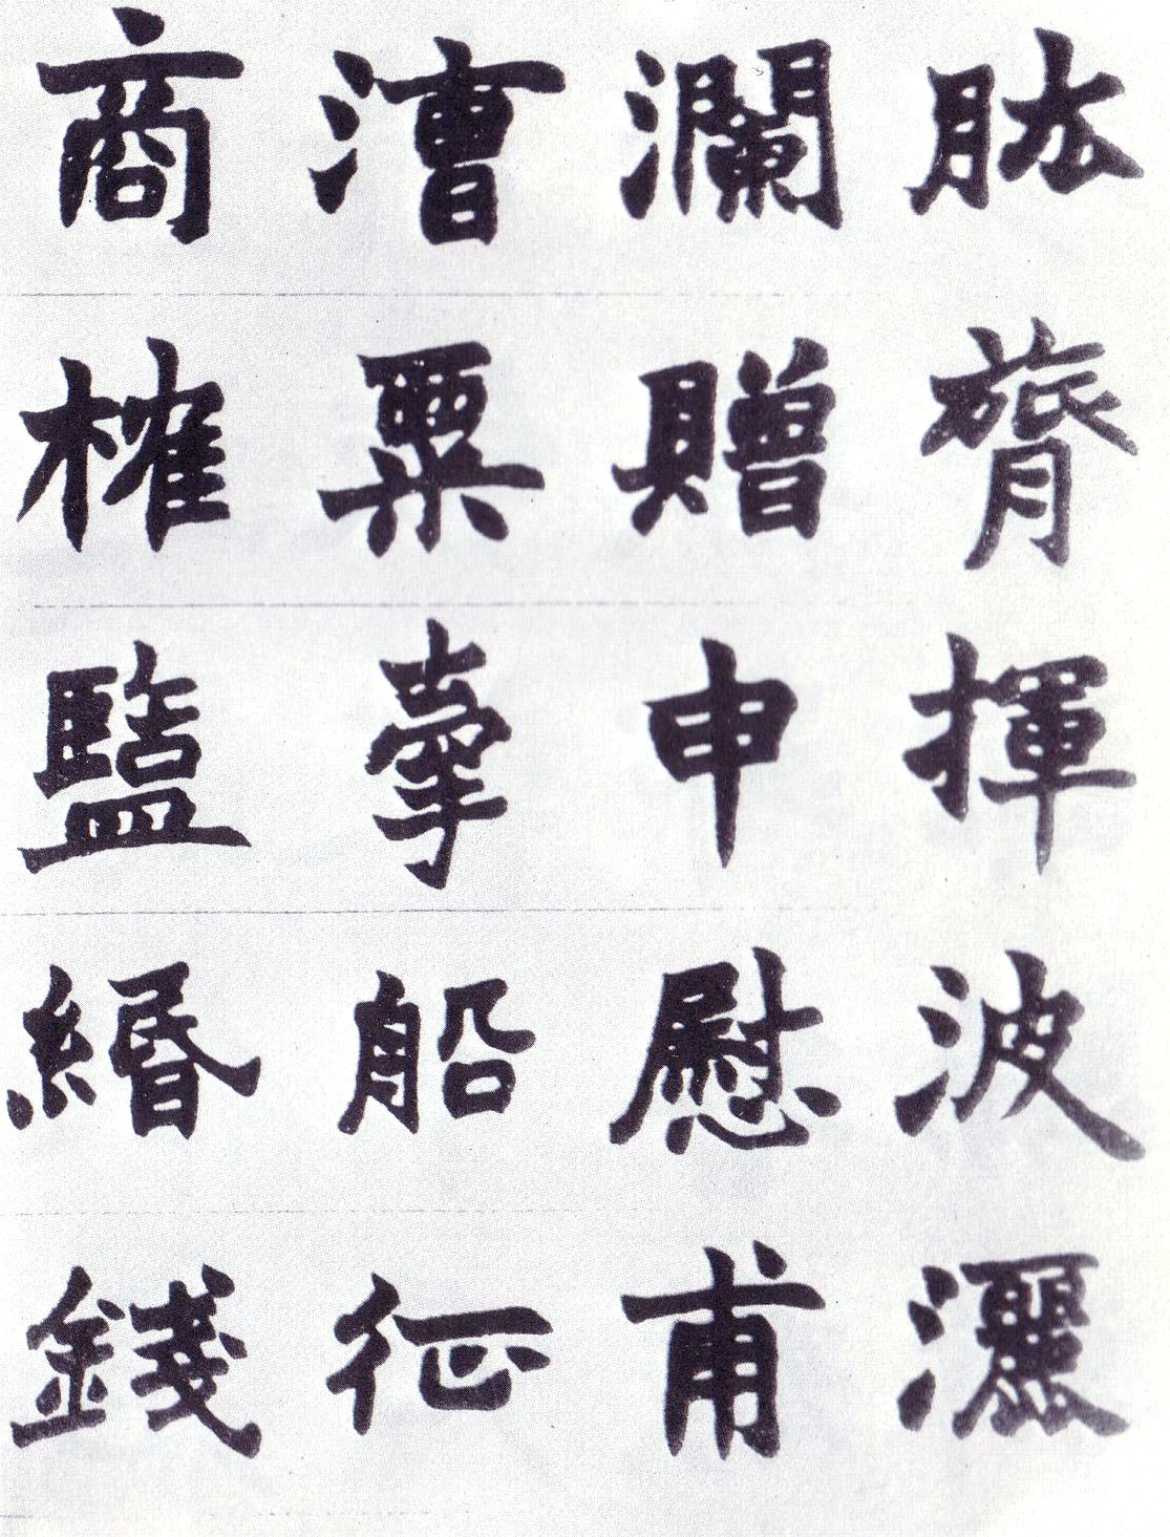 肱膂揮波灑
瀾贈申慰甫
漕粟牽船征
商榷鹽緡錢